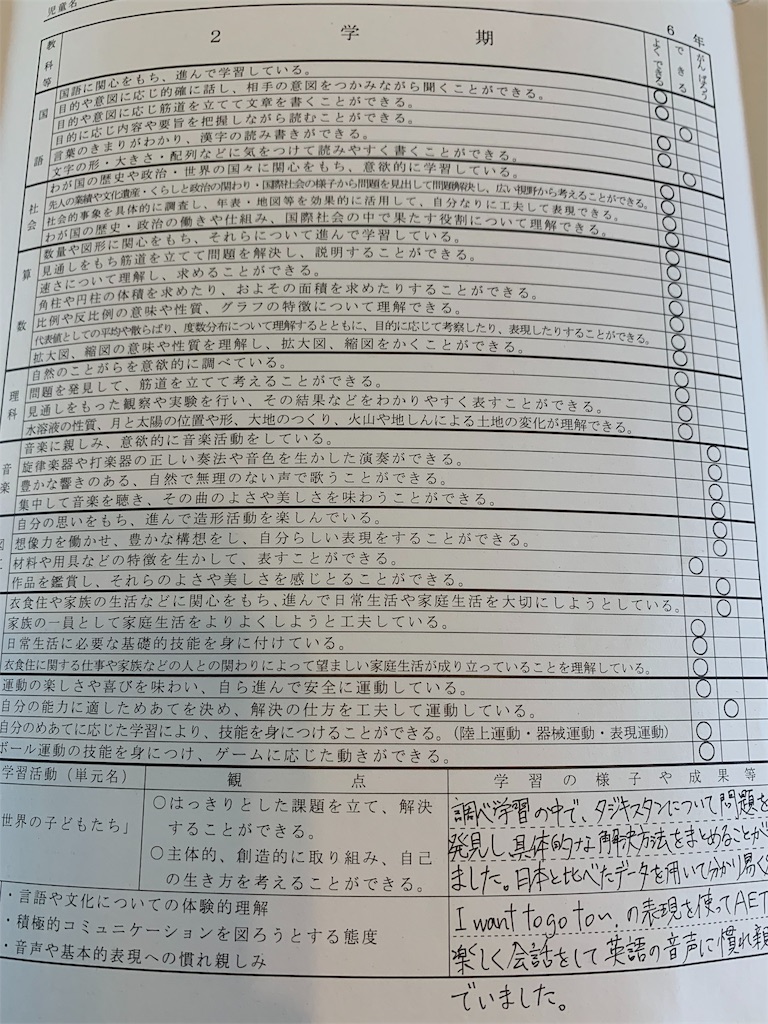 児童名
教科等
2 学期
6年
よくできる
できる
がんばろう
国語
国語に関心をもち、進んで学習している。
目的や意図に応じ的確に話し、相手の意図をつかみながら聞くことができる。
目的や意図に応じ筋道を立てて文章を書くことができる。
目的に応じ内容や要旨を把握しながら読むことができる。
言葉のきまりがわかり、漢字の読み書きができる。
文字の形・大きさ・配列などに気をつけて読みやすく書くことができる。
社会
わが国の歴史や政治・世界の国々に関心をもち、意欲的に学習している。
先人の業績や文化遺産・くらしと政治の関わり・国際社会の様子から問題を見出して問題解決し、広い視野から考えることができる。
社会的事象を具体的に調査し、年表・地図等を効果的に活用して、自分なりに工夫して表現できる。
わが国の歴史・政治の働きや仕組み、国際社会の中で果たす役割について理解できる。
算数
数量や図形に関心をもち、それらについて進んで学習している。
見通しをもち筋道を立てて問題を解決し、説明することができる。
速さについて理解し、求めることができる。
角柱や円柱の体積を求めたり、およその面積を求めたりすることができる。
比例や反比例の意味や性質、グラフの特徴について理解できる。
代表値としての平均や散らばり、度数分布について理解するとともに、目的に応じて考察したり、表現したりすることができる。
拡大図、縮図の意味や性質を理解し、拡大図、縮図をかくことができる。
理科
自然のことがらを意欲的に調べている。
問題を発見して、筋道を立てて考えることができる。
見通しをもった観察や実験を行い、その結果などをわかりやすく表すことができる。
水溶液の性質、月と太陽の位置や形、大地のつくり、火山や地しんによる土地の変化が理解できる。
音楽
音楽に親しみ、意欲的に音楽活動をしている。
旋律楽器や打楽器の正しい奏法や音色を生かした演奏ができる。
豊かな響きのある、自然で無理のない声で歌うことができる。
集中して音楽を聴き、その曲のよさや美しさを味わうことができる。
自分の思いをもち、進んで造形活動を楽しんでいる。
想像力を働かせ、豊かな構想をし、自分らしい表現をすることができる。
材料や用具などの特徴を生かして、表すことができる。
作品を鑑賞し、それらのよさや美しさを感じとることができる。
衣食住や家族の生活などに関心をもち、進んで日常生活や家庭生活を大切にしようとしている。
家族の一員として家庭生活をよりよくしようと工夫している。
日常生活に必要な基礎的技能を身に付けている。
衣食住に関する仕事や家族などの人との関わりによって望ましい家庭生活が成り立っていることを理解している。
運動の楽しさや喜びを味わい、自ら進んで安全に運動している。
自分の能力に適しためあてを決め、解決の仕方を工夫して運動している。
自分のめあてに応じた学習により、技能を身につけることができる。(陸上運動・器械運動・表現運動)
ボール運動の技能を身につけ、ゲームに応じた動きができる。
学習活動(単元名) 観点 学習の様子や成果等
世界の子どもたち」
○はっきりとした課題を立て、解決
することができる。
○主体的、創造的に取り組み、自己
の生き方を考えることができる。
調べ学習の中で、タジキスタンについて問題を
発見し、具体的な解決方法をまとめることが
ました。日本と比べたデータを用いて分かり易く
・言語や文化についての体験的理解
・積極的コミュニケーションを図ろうとする態度
・音声や基本的表現への慣れ親しみ
I want to go to~. の表現を使ってAET
楽しく会話をして英語の音声に慣れ親
でいました。